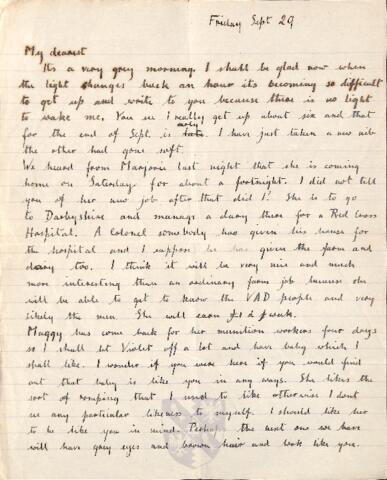 Friday Sept 29
My dearest
Its a very grey morning. I shall be glad now when
the light changes back an hour its becoming so difficult
to get up and write to you because there is no light
to wake me. You see I really get up about six and that
for the end of Sept. is early. I have just taken a new nib
the other had gone soft.
We heard from Marjorie last night that she is coming
home on Saturday for about a fortnight. I did not tell
you of her new job after that did I? She is to go
to Darbyshire and manage a dairy there for a Red Cross
Hospital. A Colonel somebody has given his house for
the hospital and I suppose he has given the farm and
dairy too. I think it will be very nice and much
more interesting than an ordinary farm job because she
will be able to get to know the VAD people and very
likely the men. She will earn £1 a week.
Maggy has come back for her munition workers four days
so I shall let Violet off a lot and have baby which I
shall like. I wonder if you were here if you would find
out that baby is like you in any ways. She likes the
sort of romping that I used to like otherwise I dont
see any particular likeness to myself. I should like her
to be like you in mind. Perhaps the next one we have
will have grey eyes and brown hair and look like you.